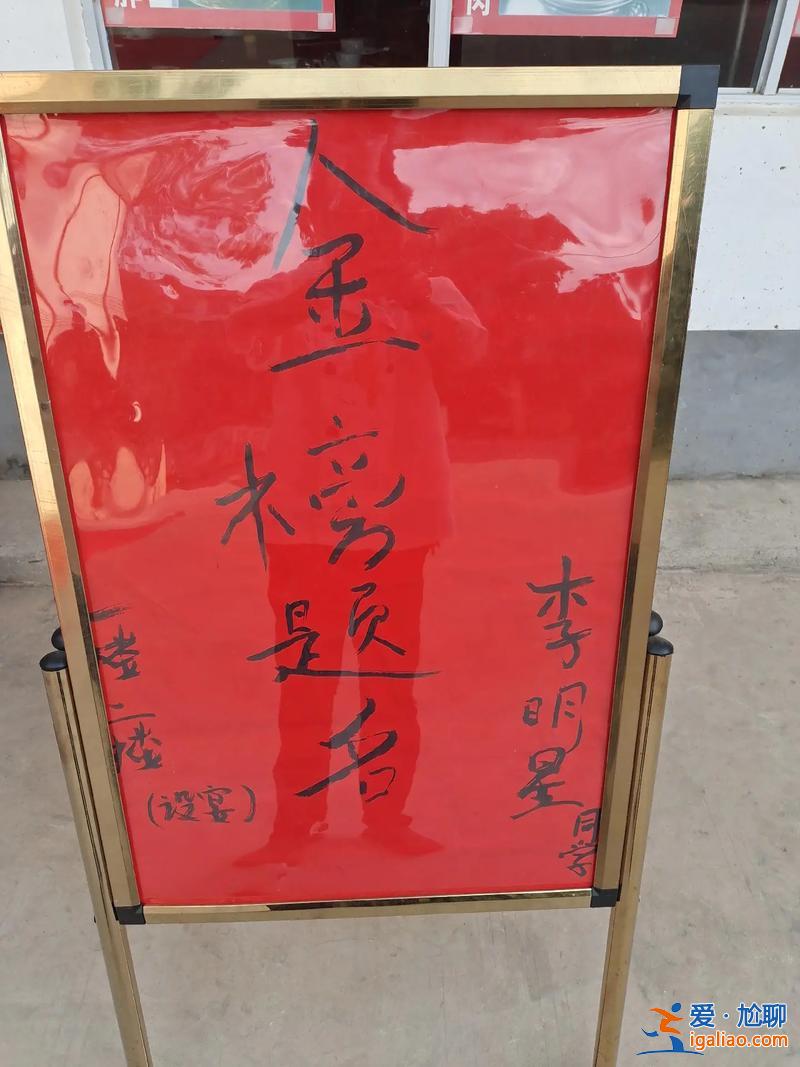 李明星同学
金榜题名
一楼二楼
(设宴)
爱·尬聊
igaliao.com